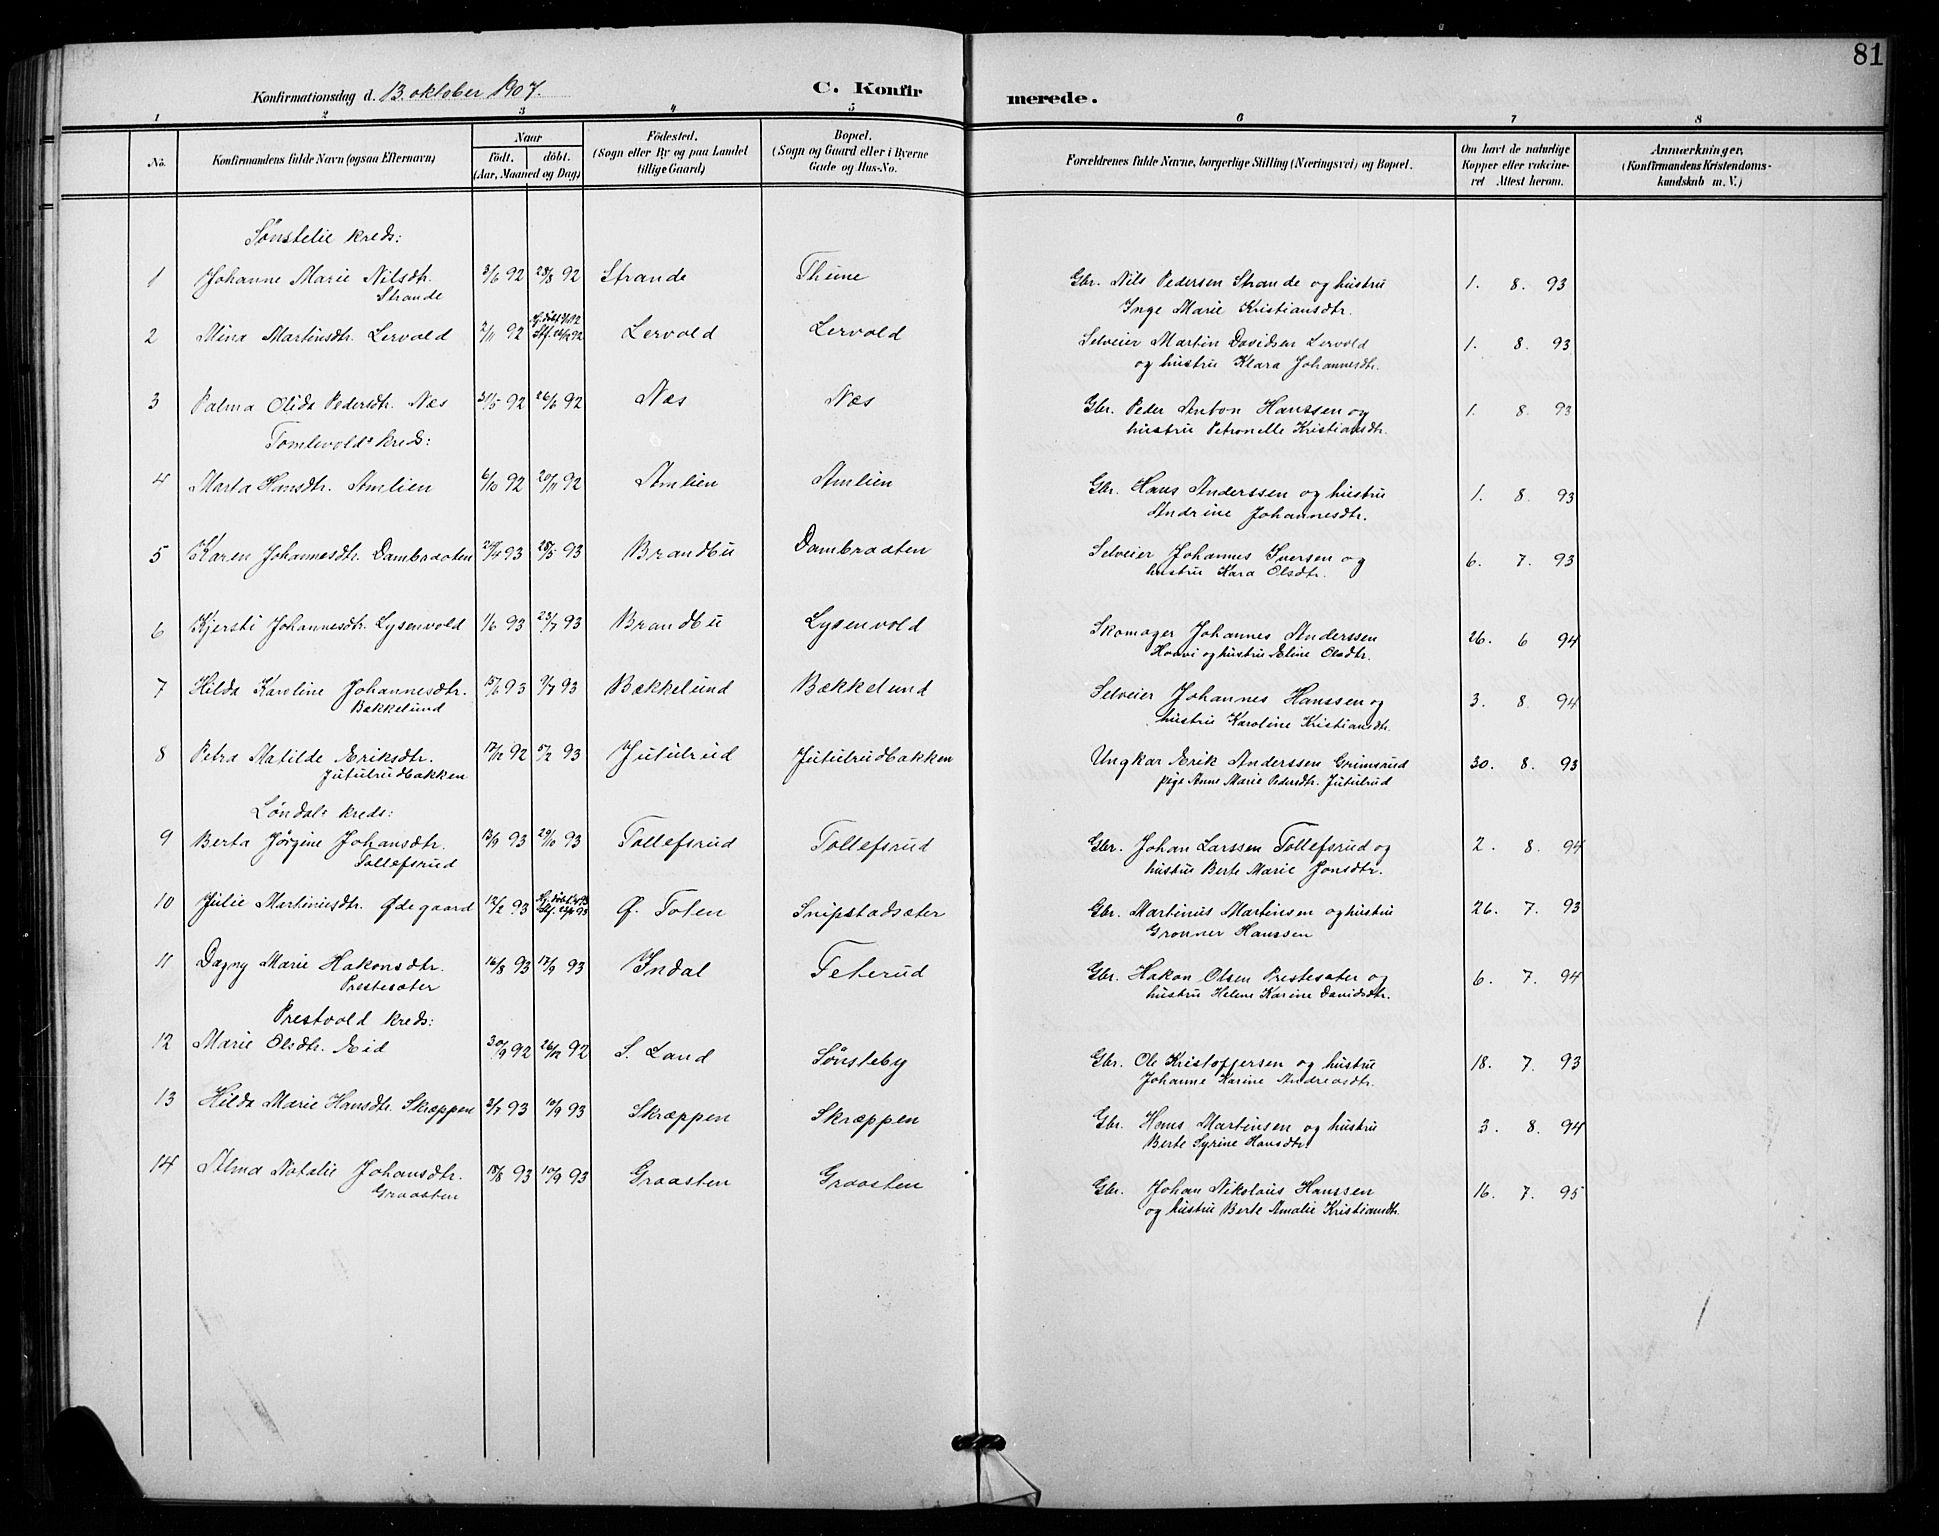 81
Konfirmationsdag d. 13. oktober 1907. C. Konfirmerede.
1 2 3 4 5 6 7 8
No. Konfirmandens fulde Navn (ogsaa Efternavn) Naar födt. döbt. (Aar, Maaned og Dag) Födested. (Sogn eller By og paa Landet tillige Gaard) Bopæl. (Sogn og Gaard eller i Byerne Gade og Hus-No. Forældrenes fulde Navne, borgerlige Stilling (Næringsvei) og Bopæl. Om havt de naturlige Kopper eller vakcineret Attest herom. Anmærkninger, (Konfirmandens Kristendomskundskab m. V.)
Sønstelie kreds:
1 Johanne Marie Nilsdtr. 3/6 92 28/8 92 Strande Thune Gbr. Nils Pedersen Strande og hustru 1. 8. 93
Strande Inge Marie Kristiansdtr.
2 Mina Martinsdtr. Lervold 2/11 92 Lervold Lervold Selveier Martin Davidsen Lervold 1. 8. 93
og hustru Klara Johannesdtr.
3 Palma Olida Pedersdtr. Næs 31/5 92 26/6 92 Næs Næs Gbr. Peder Anton Hanssen og 1. 8. 93
hustru Petronelle Kristiansdtr.
Tomlevolds kreds:
4 Marta Hansdtr. Amlien 6/10 92 20/11 92 Amlien Amlien Gbr. Hans Anderssen og hustru 1. 8. 93
Andrine Johannesdtr.
5 Karen Johannesdtr. Dambraaten 93 28/5 93 Brandbu Dambraaten Selveier Johannes Iversen og 6. 7. 93
hustru Kara Olsdtr.
6 Kjersti Johannesdtr. Lysenvold 1/6 93 23/7 93 Brandbu Lysenvold Skomager Johannes Anderssen 26. 6 94
og hustru Eline Olsdtr.
7 Hilda Karoline Johannesdtr. 15/6 93 9/7 93 Bækkelund Bækkelund Selveier Johannes Hanssen og 3. 8. 94
Bækkelund hustru Karoline Kristiansdtr.
8 Petra Matilde Eriksdtr. 17/12 92 5/2 93 Jutulrud Jutulrudbakken Ungkar Erik Anderssen Grimsrud 30. 8. 93
Jutulrudbakken pige Anne Marie Pedersdtr. Jutulrud
Løndals kreds:
9 Berta Jørgine Johansdtr. 13/9 93 29/10 93 Tollefsrud Tollefsrud Gbr. Johan Larssen Tollefsrud og 2. 8. 94
Tollefsrud hustru Berte Marie Jonsdtr.
10 Julie Martinusdtr. Ødegaard 12/2 93 Ø. Toten Snipstadsæter Gbr. Martinus Martinsen og hustru 26. 7. 93
Gronner Hanssen
11 Dagny Marie Hakonsdtr. 16/8 93 17/9 93 Indal Feterud Gbr. Hakon Olsen Prestesæter og 6. 7. 94
Prestesæter hustru Helene Karine Davidsdtr.
Prestvold kreds:
12 Marie Olsdtr. Eid 30/9 92 26/12 92 S. Land Sønsteby Gbr. Ole Kristoffersen og hustru 18. 7. 93
Johanne Karine Andreasdtr.
13 Hilda Marie Hansdtr. Skræppen 3/7 93 10/9 93 Skræppen Skræppen Gbr. Hans Martinsen og hustru 3. 8. 94
Berte Syrine Hansdtr.
14 Alma Natalie Johansdtr. 15/8 93 10/9 93 Graasten Graasten Gbr. Johan Nikolaus Hanssen 16. 7. 95
Graasten og hustru Berte Amalie Kristiansdtr.